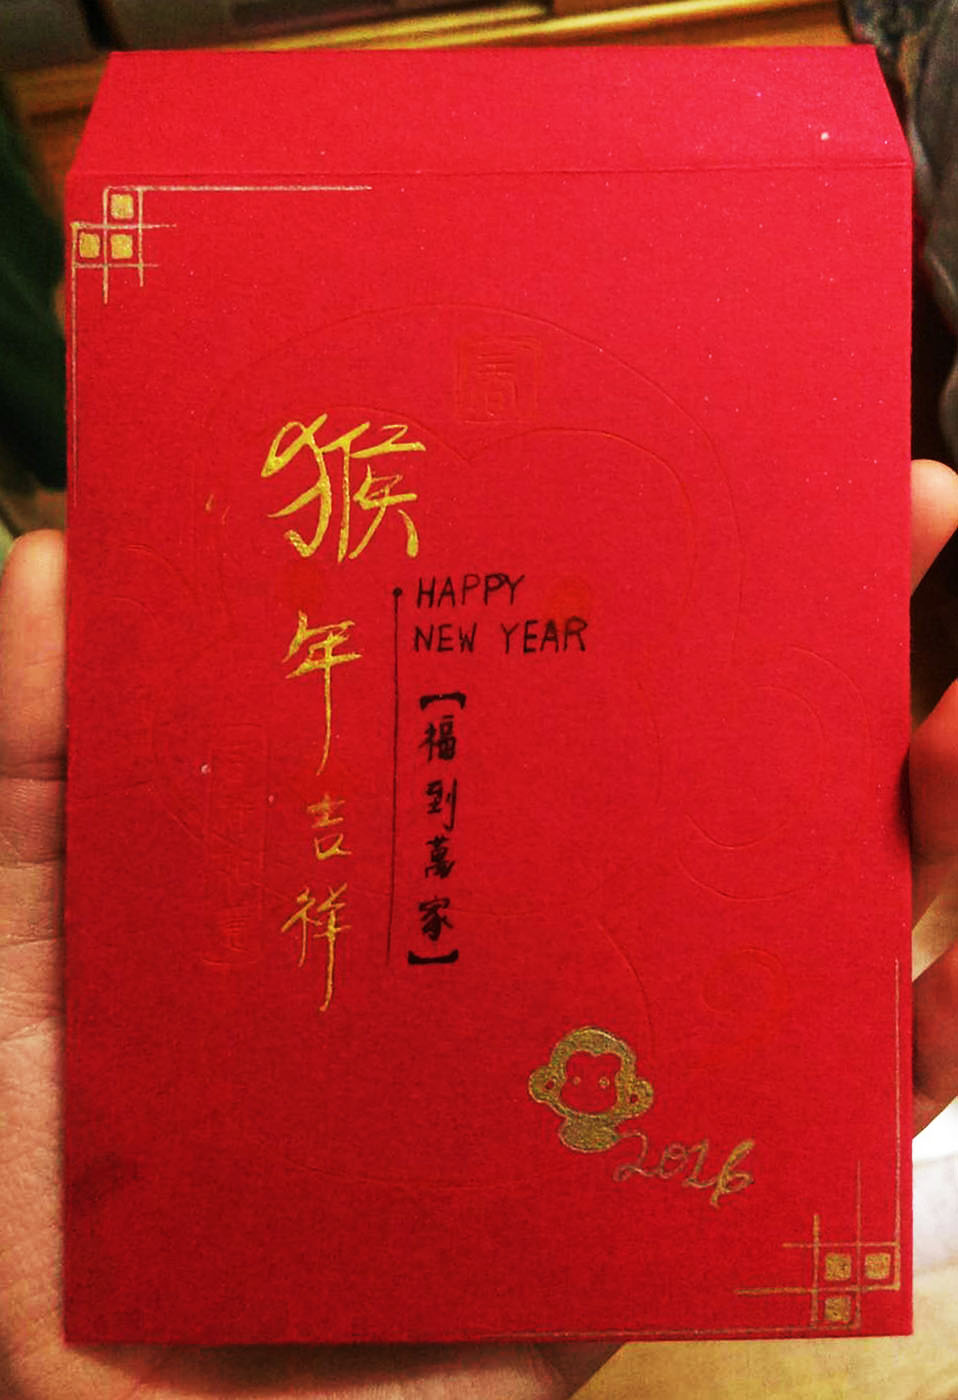 猴年吉祥
HAPPY
NEW YEAR
【福到萬家】
2016